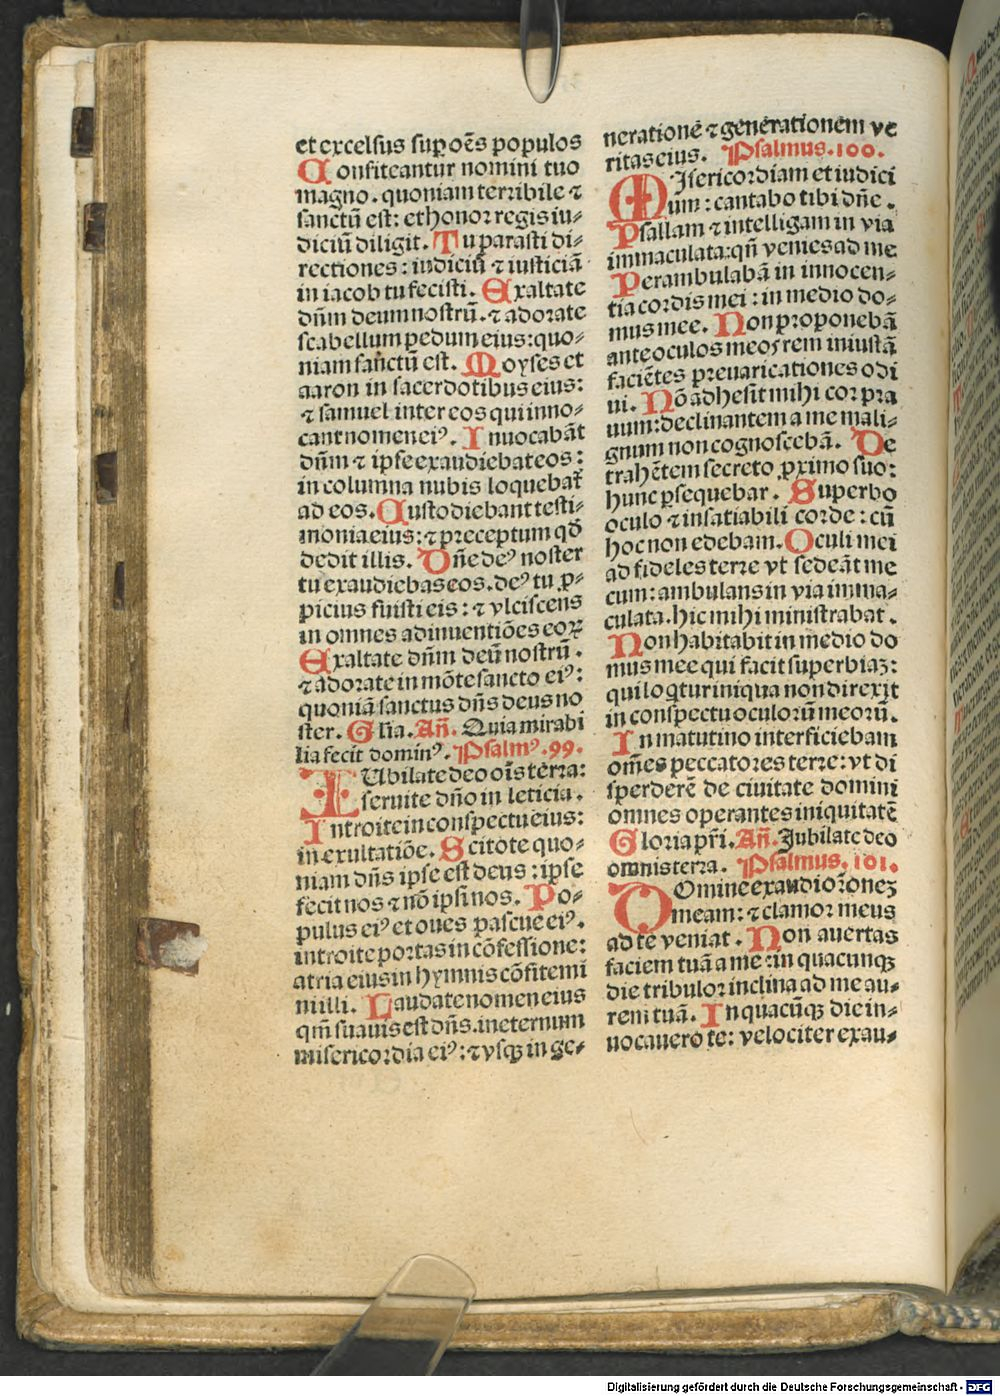 et excelsus suꝑ oēs populos
Confiteantur nomini tuo
magno. quoniam terribile ⁊
sanctū est: et honor regis iu⸗
diciū diligit. Tu parasti di⸗
rectiones: iudiciū ⁊ iusticiā
in iacob tu fecisti. Exaltate
dn̄m deum nostrū. ⁊ adorate
scabellum pedum eius: quo⸗
niam sanctū est. Moyses et
aaron in sacerdotibus eius:
⁊ samuel inter eos qui inuo⸗
cant nomen eiꝰ. Inuocabāt
dn̄m ⁊ ipse exaudiebat eos:
in columna nubis loquebat̄
ad eos. Custodiebant testi⸗
monia eius: ⁊ preceptum qđ
dedit illis. Dn̄e deꝰ noster
tu exaudiebas eos. deꝰ tu ꝓ⸗
picius fuisti eis: ⁊ vlciscens
in omnes adinuentiōes eoꝝ
Exaltate dn̄m deū nostrū.
⁊ adorate in mōte sancto eiꝰ:
quoniā sanctus dn̄s deus no
ster. Gl̄ia. An̄. Quia mirabi
lia fecit dominꝰ. Psalmꝰ .99.
IUbilate deo oīs terra:
seruite dn̄o in leticia.
Introite in conspectu eius:
in exultatiōe. Scitote quo⸗
niam dn̄s ipse est deus: ipse
fecit nos ⁊ nō ipsi nos. Po⸗
pulus eiꝰ et oues pascue eiꝰ.
introite portas in cōfessione:
atria eius in hymnis cōfitemi
ni illi. Laudate nomen eius
qm̄ suauis est dn̄s. in eternum
misericordia eiꝰ: ⁊ vsqꝫ in ge⸗
nerationē ⁊ generationem ve
ritas eius. Psalmus .100.
MIsericordiam et iudici
um: cantabo tibi dn̄e.
Psallam ⁊ intelligam in via
immaculata: qn̄ venies ad me
Perambulabā in innocen⸗
tia cordis mei: in medio do⸗
mus mee. Non proponebā
ante oculos meos rem iniustā
faciētes preuaricationes odi
ui. Nō adhesit mihi cor pra
uum: declinantem a me mali⸗
gnum non cognoscebā. De
trahētem secreto ꝓximo suo:
hunc ꝑsequebar. Superbo
oculo ⁊ insatiabili corde: cū
hoc non edebam. Oculi mei
ad fideles terre vt sedeāt me
cum: ambulans in via imma⸗
culata. hic mihi ministrabat.
Non habitabit in medio do
mus mee qui facit superbiaꝫ:
qui loq̄tur iniqua non direxit
in conspectu oculorū meorū.
In matutino interficiebam
om̄es peccatores terre: vt di
sperderē de ciuitate domini
omnes operantes iniquitatē
Gloria pr̄i. An̄. Jubilate deo
omnis terra. Psalmus .101.
DOmine exaudi or̄oneꝫ
meam: ⁊ clamor meus
ad te veniat. Non auertas
faciem tuā a me: in quacunqꝫ
die tribulor inclina ad me au⸗
rem tuā. In quacūqꝫ die in⸗
uocauero te: velociter exau⸗
Digitalisierung gefördert durch die Deutsche Forschungsgemeinschaft - DFG